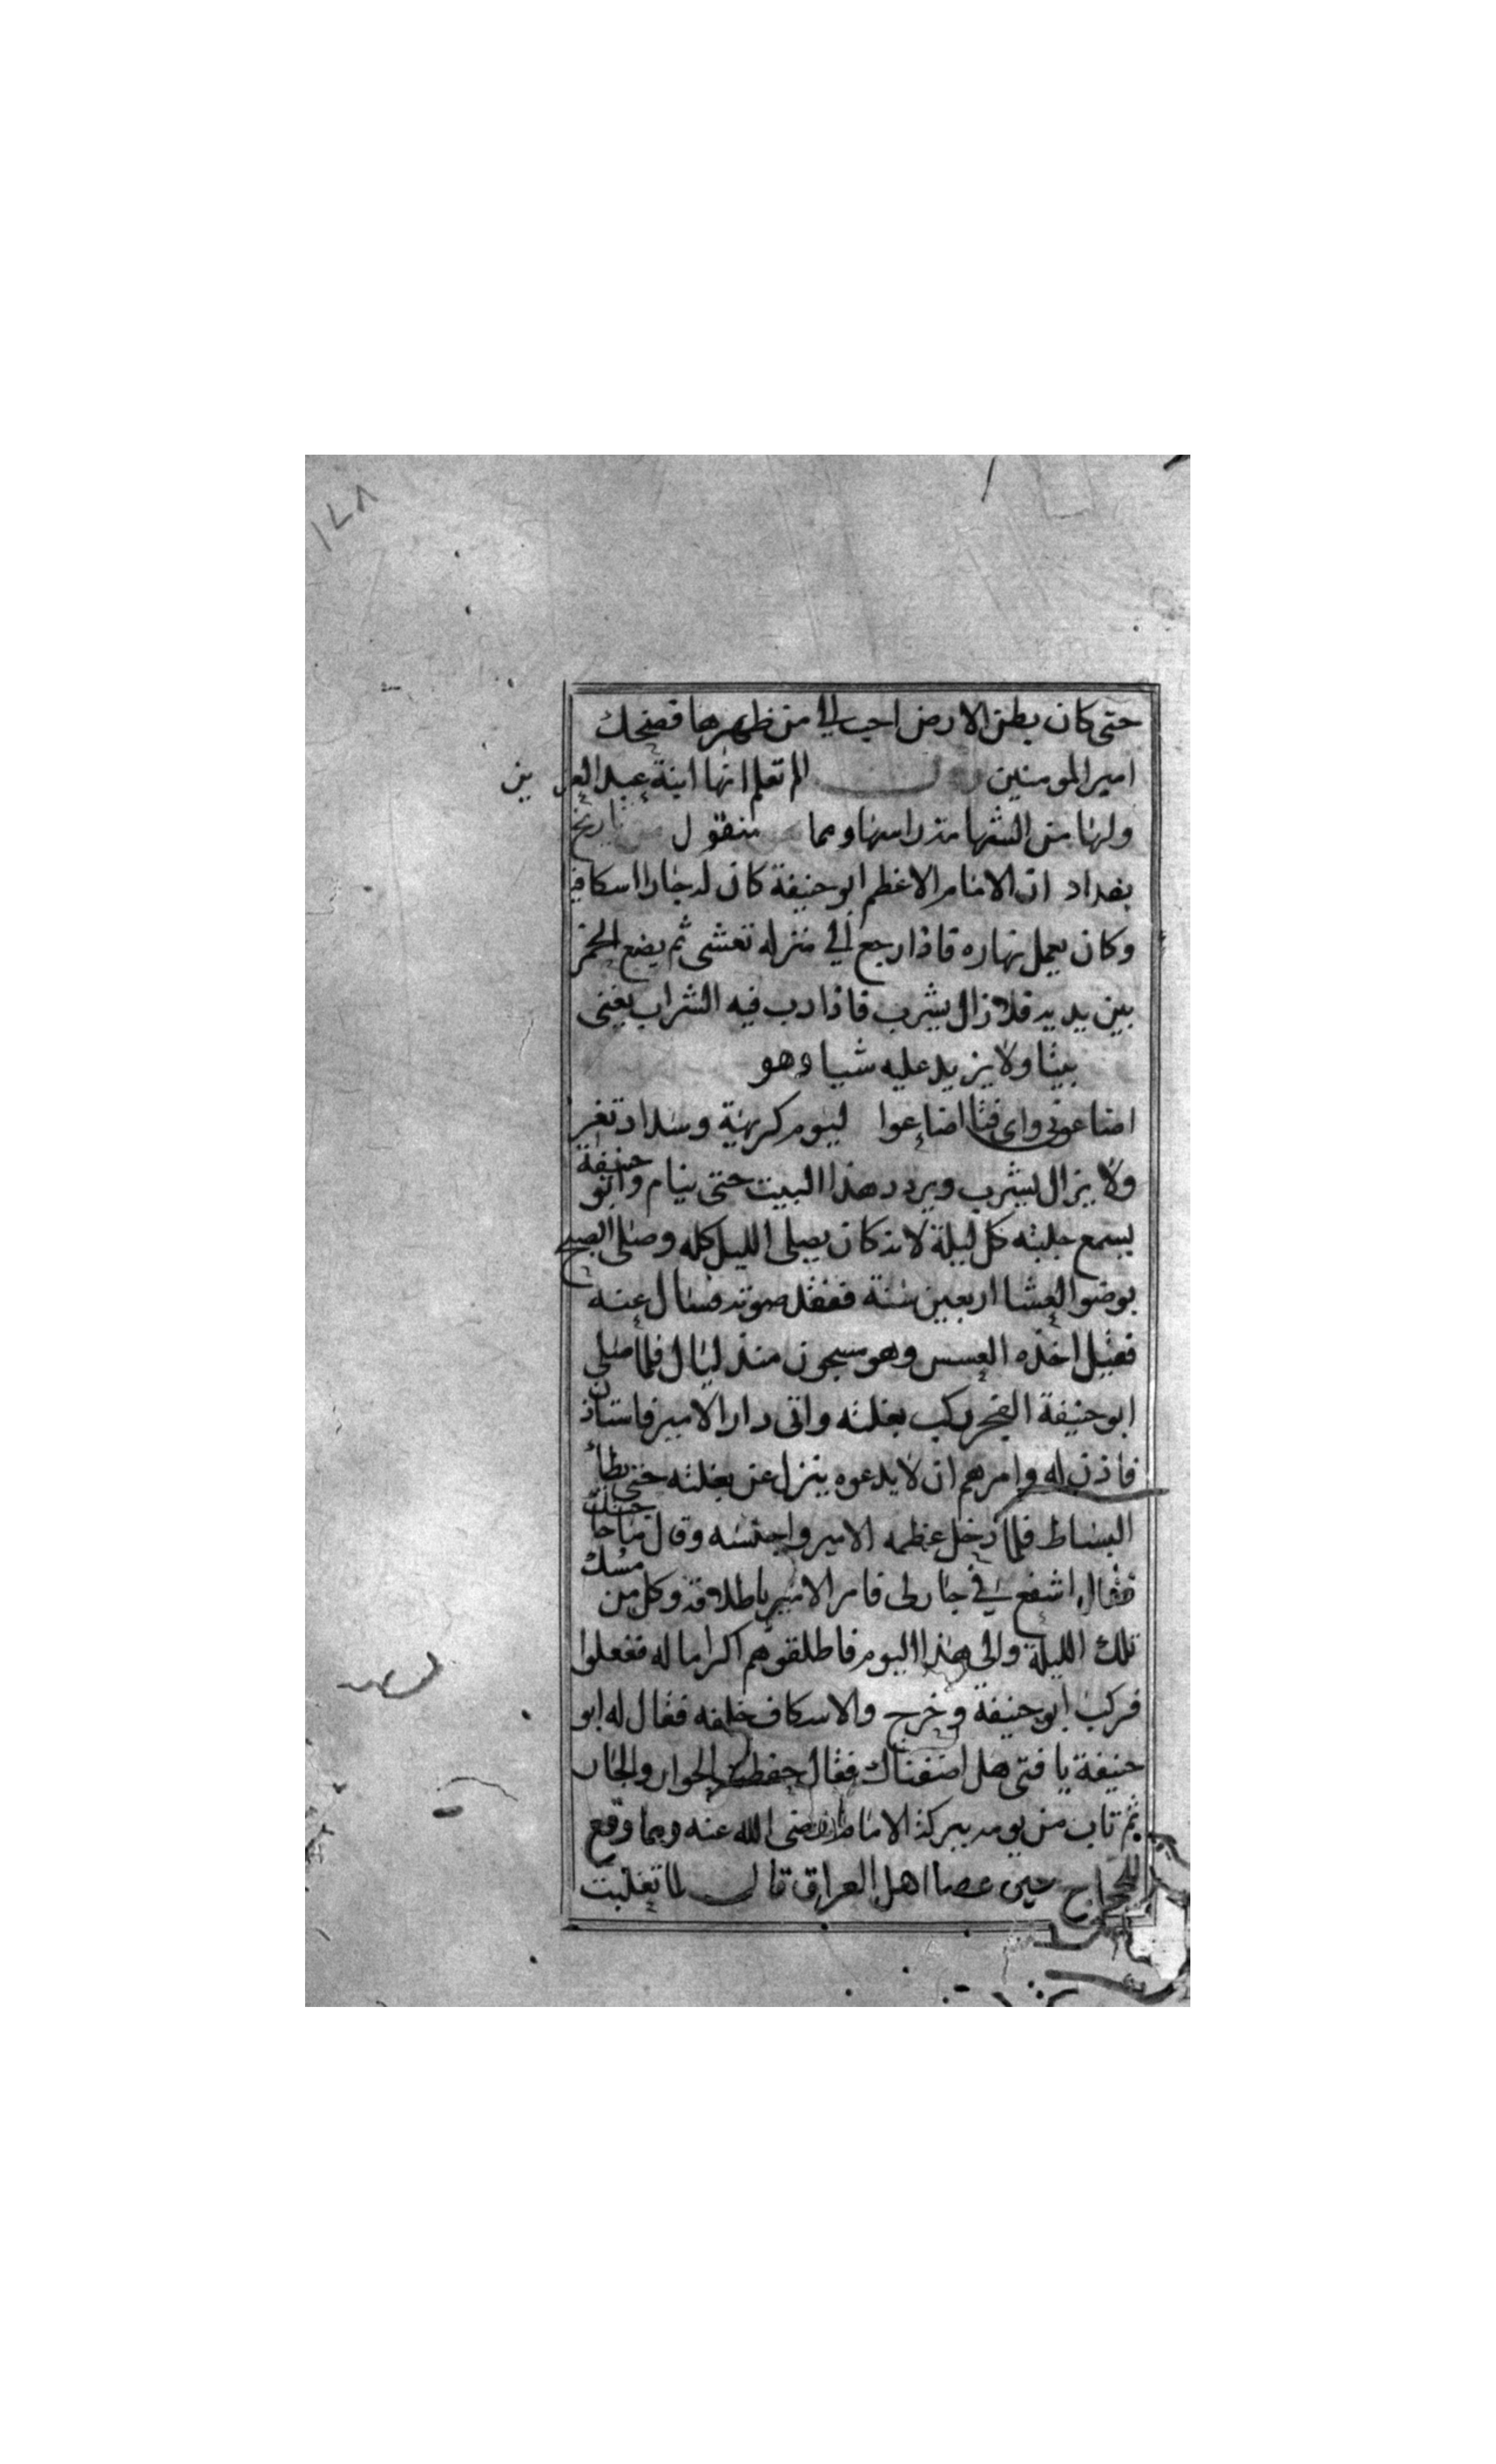 ١٤٨
حتى كان بطن الارض احب الي من ظهرها فضحك
امير المومنين وقال الم تعلم انها ابنة عبد العزيز
ولها من الشهامة راسها ومما منقول من تاريخ
بغداد ان الامام الاعظم ابو حنيفة كان له جارا اسكافيا
وكان يعمل نهاره فاذا رجع الي منزله تعشى ثم يضع الخمر
بين يديه فلا زال يشرب فاذا دب فيه الشراب يغني
بيتا ولا يزيد عليه شيا وهو
اضاعوني واي فتا اضاعوا ليوم كريهة وسداد تغر
ولا يزال يشرب ويردد هذا البيت حتى ينام وابو حنيفة
يسمع جلبته كل ليلة لانه كان يصلي الليل كله وصلى الصبح
بوضوا العشا اربعين سنة ففقد صوته فسال عنه
فقيل اخذه العسس وهو مسجون منذ ليال فلما صلى
ابو حنيفة الفجر ركب بغلته واتى دار الامير فاستاذن
فاذن له وامرهم ان لا يدعوه ينزل عن بغلته حتى يطأ
البساط فلما دخل عظمه الامير واجلسه وقال ما حاجتك
فقال اشفع في جار لي فامر الامير باطلاقه وكل من مسك
تلك الليلة والى هذا اليوم فاطلقوهم اكراما له ففعلوا
فركب ابو حنيفة وخرج والاسكاف خلفه فقال له ابو
حنيفة يا فتى هل اضعناك فقال حفظت الجوار والجار
ثم تاب من يومه ببركة الامام رضى الله عنه ومما وقع
للحجاج حين عصا اهل العراق قال لما تغلبت